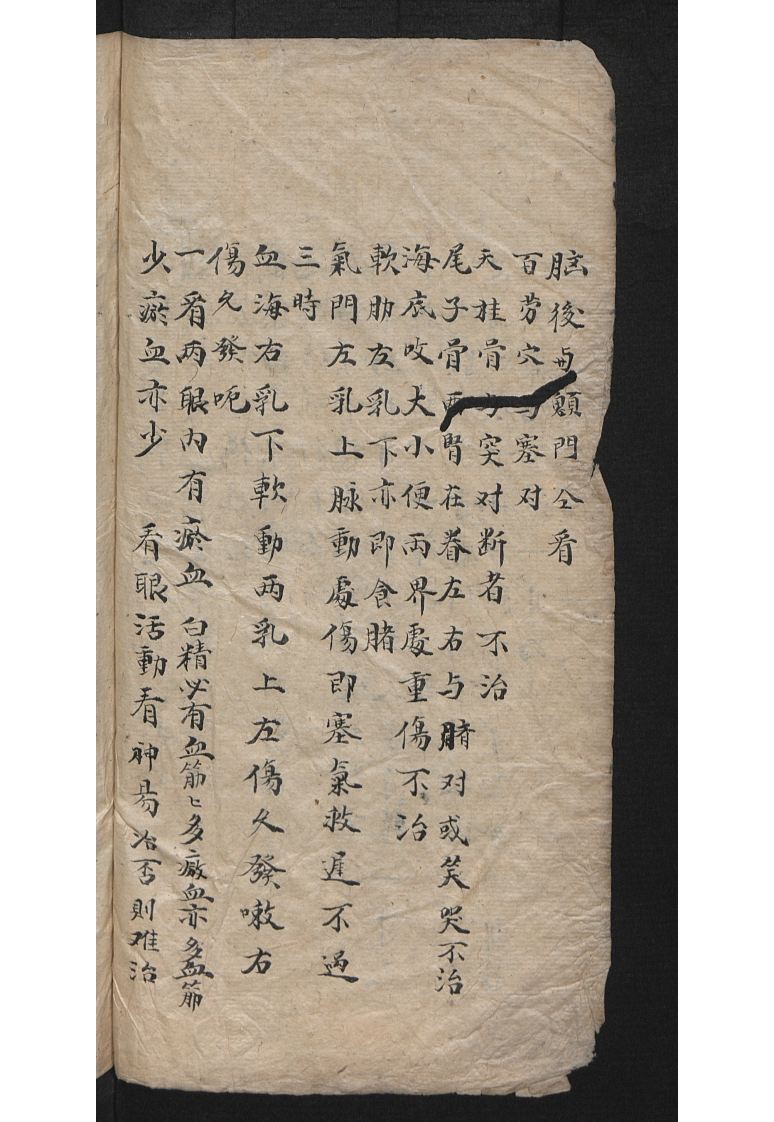 脑後与顖門仝看
百劳穴与塞对
天柱骨与突对断者不治
尾子骨兩腎在脊左右与腈对或笑哭不治
海底咬大小便両界處重傷不治
軟肋左乳下亦即食賭
氣門左乳上脉動處傷即塞氣救遅不過
三時
血海右乳下軟動两乳上左傷久發嗽右
傷久發呃
一看两眼内有瘀血　白精必有血筋〻多瘀血亦多血筋
少瘀血亦少　看眼活動看神易治否則难治